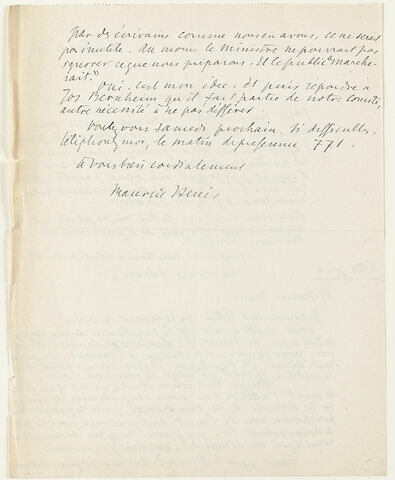 par des écrivains comme nous en avons, ce ne serait
pas inutile. Au moins le Ministre ne pourrait pas
ignorer ce que nous préparons. Et le public "marche-
rait."
Oui, c'est mon idée. Et puis répondre à
Jos Bernheim qu'il fait partie de notre comité,
autre nécessité à ne pas différer.
Voulez vous Samedi prochain. Si difficultés,
téléphonez moi, le matin de préférence 771.
à vous bien cordialement
Maurice Denis